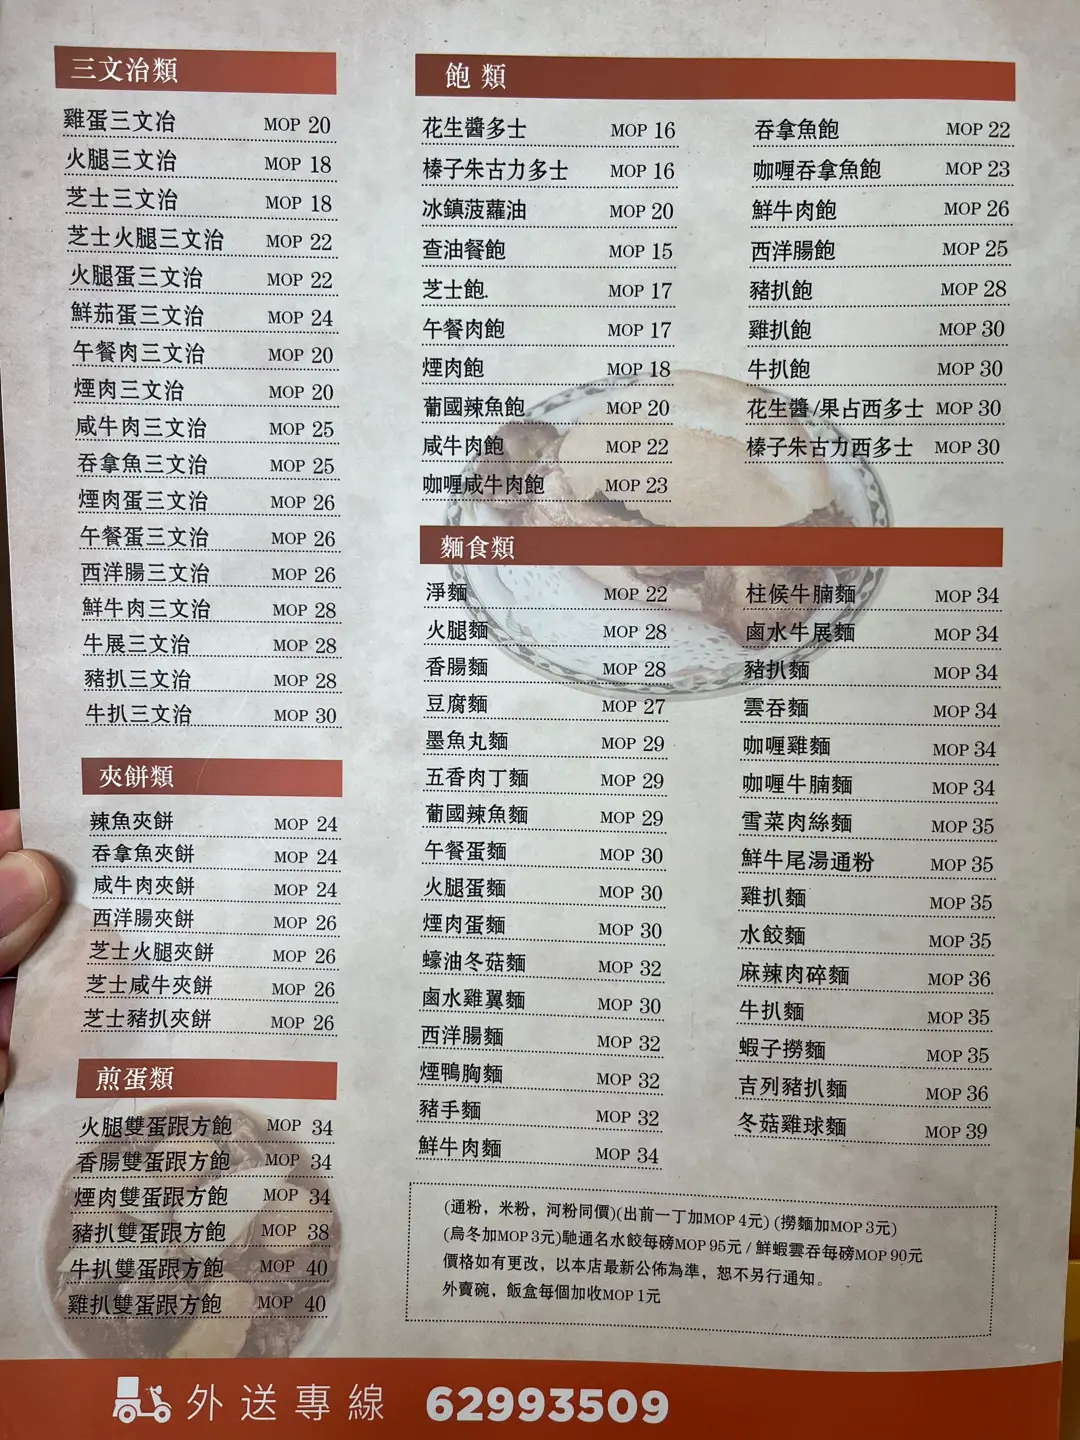 三文治類
雞蛋三文治 MOP 20
火腿三文治 MOP 18
芝士三文治 MOP 18
芝士火腿三文治 MOP 22
火腿蛋三文治 MOP 22
鮮茄蛋三文治 MOP 24
午餐肉三文治 MOP 20
煙肉三文治 MOP 20
咸牛肉三文治 MOP 25
吞拿魚三文治 MOP 25
煙肉蛋三文治 MOP 26
午餐蛋三文治 MOP 26
西洋腸三文治 MOP 26
鮮牛肉三文治 MOP 28
牛展三文治 MOP 28
豬扒三文治 MOP 28
牛扒三文治 MOP 30
夾餅類
辣魚夾餅 MOP 24
吞拿魚夾餅 MOP 24
咸牛肉夾餅 MOP 24
西洋腸夾餅 MOP 26
芝士火腿夾餅 MOP 26
芝士咸牛夾餅 MOP 26
芝士豬扒夾餅 MOP 26
煎蛋類
火腿雙蛋跟方飽 MOP 34
香腸雙蛋跟方飽 MOP 34
煙肉雙蛋跟方飽 MOP 34
豬扒雙蛋跟方飽 MOP 38
牛扒雙蛋跟方飽 MOP 40
雞扒雙蛋跟方飽 MOP 40
飽類
花生醬多士 MOP 16
榛子朱古力多士 MOP 16
冰鎮菠蘿油 MOP 20
查油餐飽 MOP 15
芝士飽. MOP 17
午餐肉飽 MOP 17
煙肉飽 MOP 18
葡國辣魚飽 MOP 20
咸牛肉飽 MOP 22
咖喱咸牛肉飽 MOP 23
吞拿魚飽 MOP 22
咖喱吞拿魚飽 MOP 23
鮮牛肉飽 MOP 26
西洋腸飽 MOP 25
豬扒飽 MOP 28
雞扒飽 MOP 30
牛扒飽 MOP 30
花生醬/果占西多士 MOP 30
榛子朱古力西多士 MOP 30
麵食類
淨麵 MOP 22
火腿麵 MOP 28
香腸麵 MOP 28
豆腐麵 MOP 27
墨魚丸麵 MOP 29
五香肉丁麵 MOP 29
葡國辣魚麵 MOP 29
午餐蛋麵 MOP 30
火腿蛋麵 MOP 30
煙肉蛋麵 MOP 30
蠔油冬菇麵 MOP 32
鹵水雞翼麵 MOP 30
西洋腸麵 MOP 32
煙鴨胸麵 MOP 32
豬手麵 MOP 32
鮮牛肉麵 MOP 34
柱候牛腩麵 MOP 34
鹵水牛展麵 MOP 34
豬扒麵 MOP 34
雲吞麵 MOP 34
咖喱雞麵 MOP 34
咖喱牛腩麵 MOP 34
雪菜肉絲麵 MOP 35
鮮牛尾湯通粉 MOP 35
雞扒麵 MOP 35
水餃麵 MOP 35
麻辣肉碎麵 MOP 36
牛扒麵 MOP 35
蝦子撈麵 MOP 35
吉列豬扒麵 MOP 36
冬菇雞球麵 MOP 39
(通粉，米粉，河粉同價)(出前一丁加MOP 4元) (撈麵加MOP 3元)
(烏冬加MOP 3元)馳通名水餃每磅MOP 95元 / 鮮蝦雲吞每磅MOP 90元
價格如有更改，以本店最新公佈為準，恕不另行通知。
外賣碗，飯盒每個加收MOP 1元
外送專線 62993509